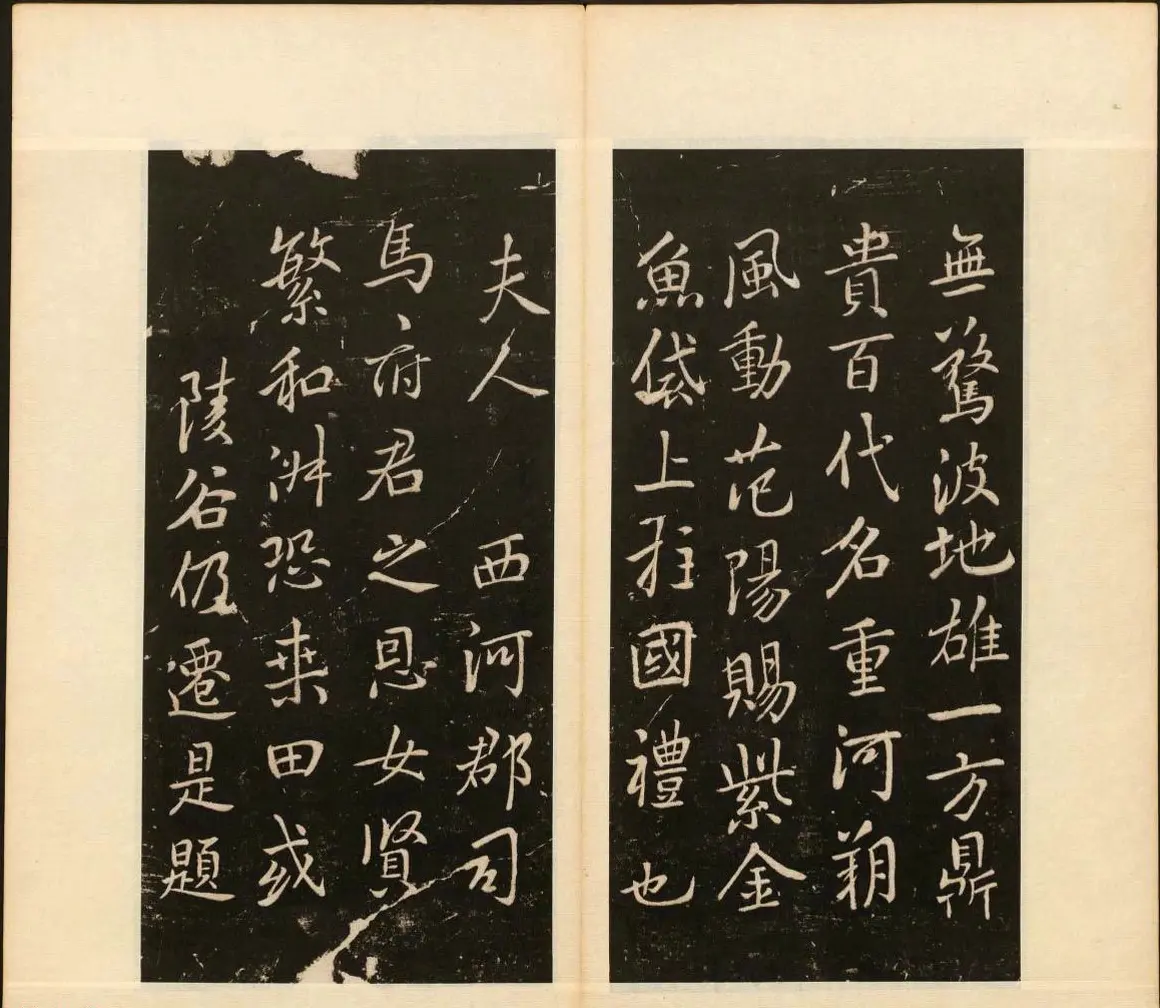 無驚波地雄一方鼎
貴百代名重河朔
風動范陽賜紫金
魚袋上柱國禮也
夫人西河郡司
馬府君之恩女賢
繁和淋恐桒田或
陵谷仍遷是題